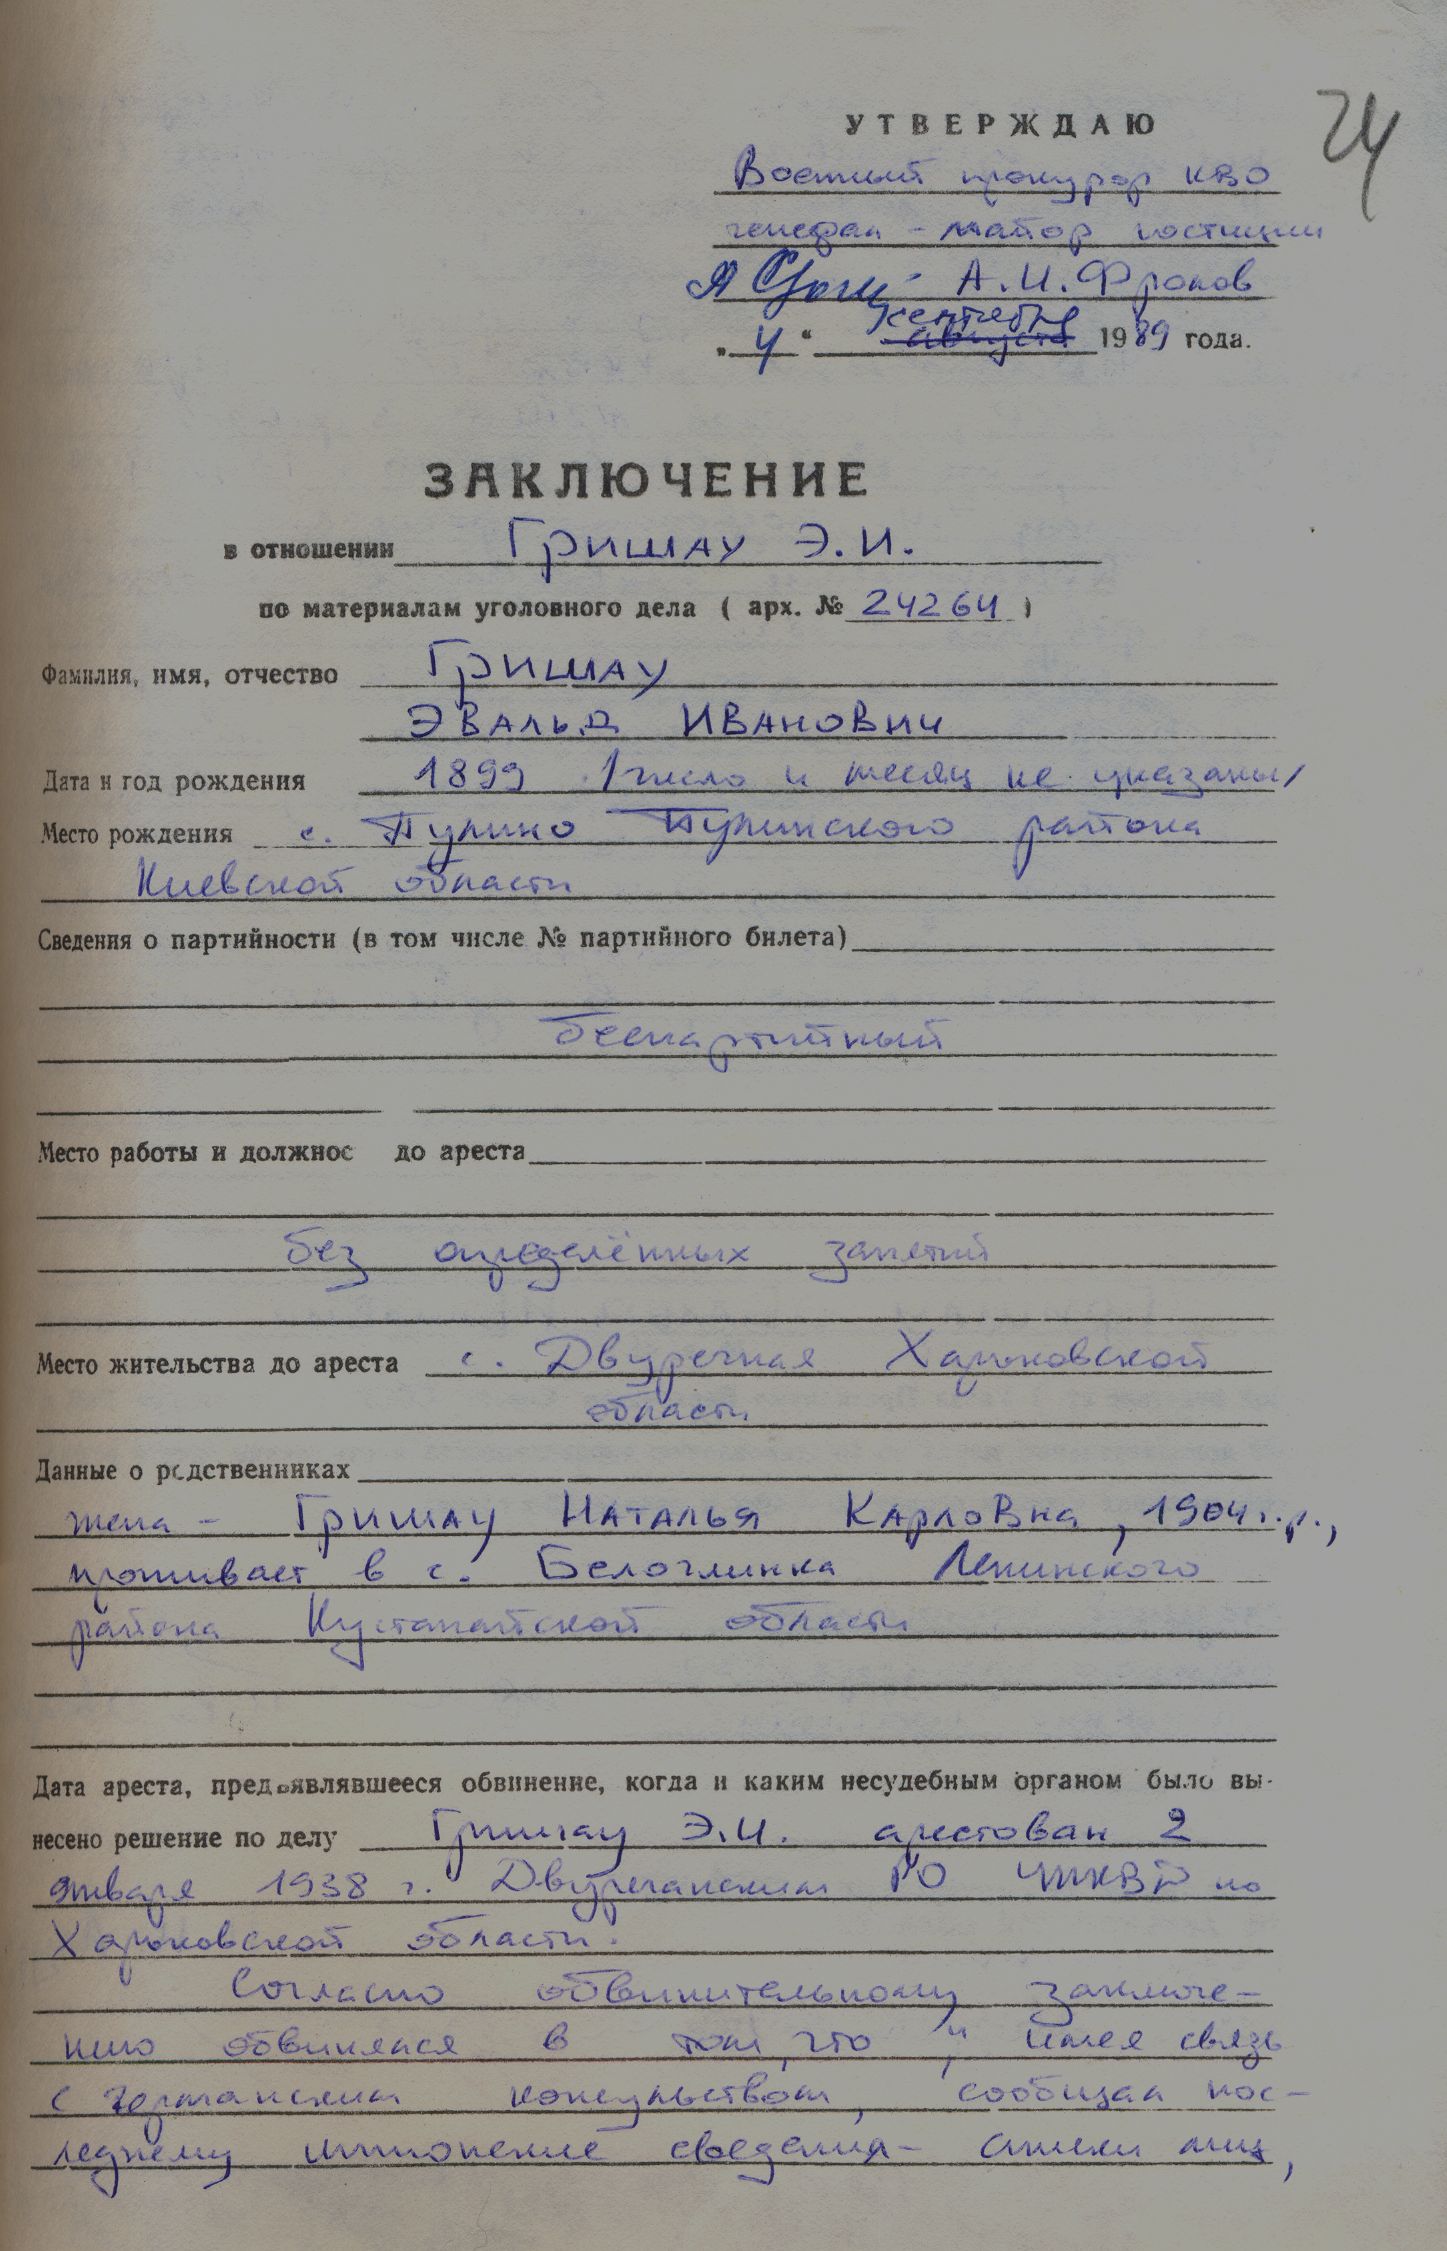 24
УТВЕРЖДАЮ
Военный прокурор КВО
генерал-майор юстиции
А.И. Фролов
„ 4 “ сентября августа 1989 года.
ЗАКЛЮЧЕНИЕ
в отношении Гришау Э.И.
по материалам уголовного дела ( арх. № 24264 )
Фамилия, имя, отчество Гришау
Эвальд Иванович
Дата и год рождения 1899 /число и месяц не указаны/
Место рождения с. Пулино Пулинского района
Киевской области
Сведения о партийности (в том числе № партийного билета)
беспартийный
Место работы и должнос до ареста
без определённых занятий
Место жительства до ареста с. Двуречная Харьковской
области
Данные о родственниках
жена - Гришау Наталья Карловна, 1904 г.р.,
проживает в с. Белоглинка Ленинского
района Кустанайской области
Дата ареста, предъявлявшееся обвинение, когда и каким несудебным органом было вы-
несено решение по делу Гришау Э.И. арестован 2
января 1938 г. Двуречанским РО УНКВД по
Харьковской области.
Согласно обвинительному заключе-
нию обвинялся в том, что „имея связь
с германским консульством, сообщал пос-
леднему шпионские сведения - списки лиц,